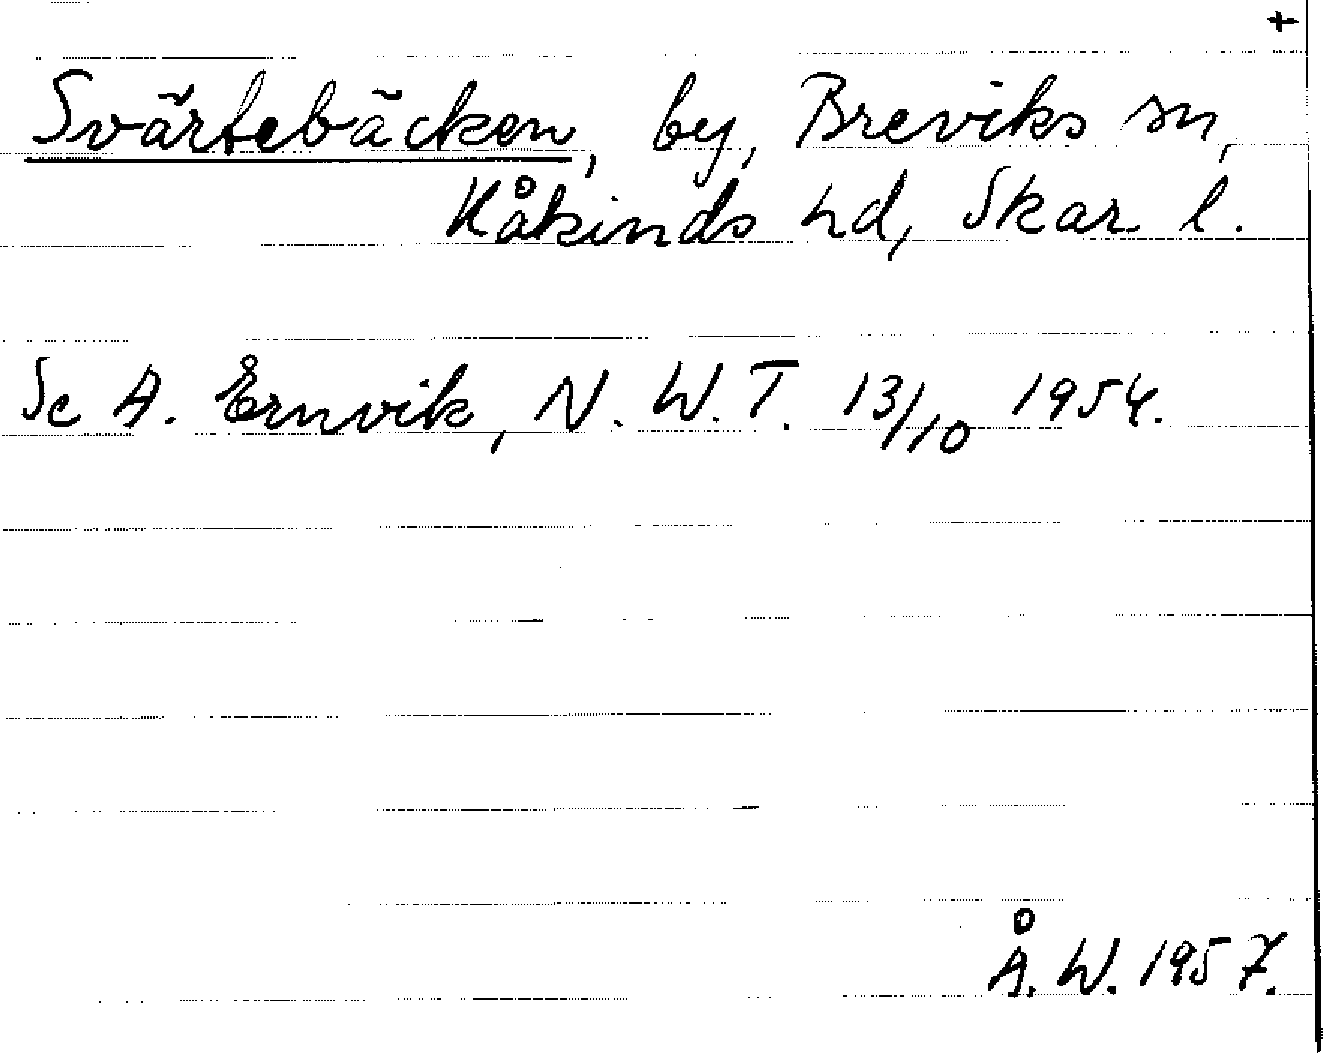 +
Svärtebäcken, by, Breviks sn,
Kåkinds hd, Skar. l.
Se A. Ernvik, N. W. T. 13/10 1954.
Å. W. 1957.